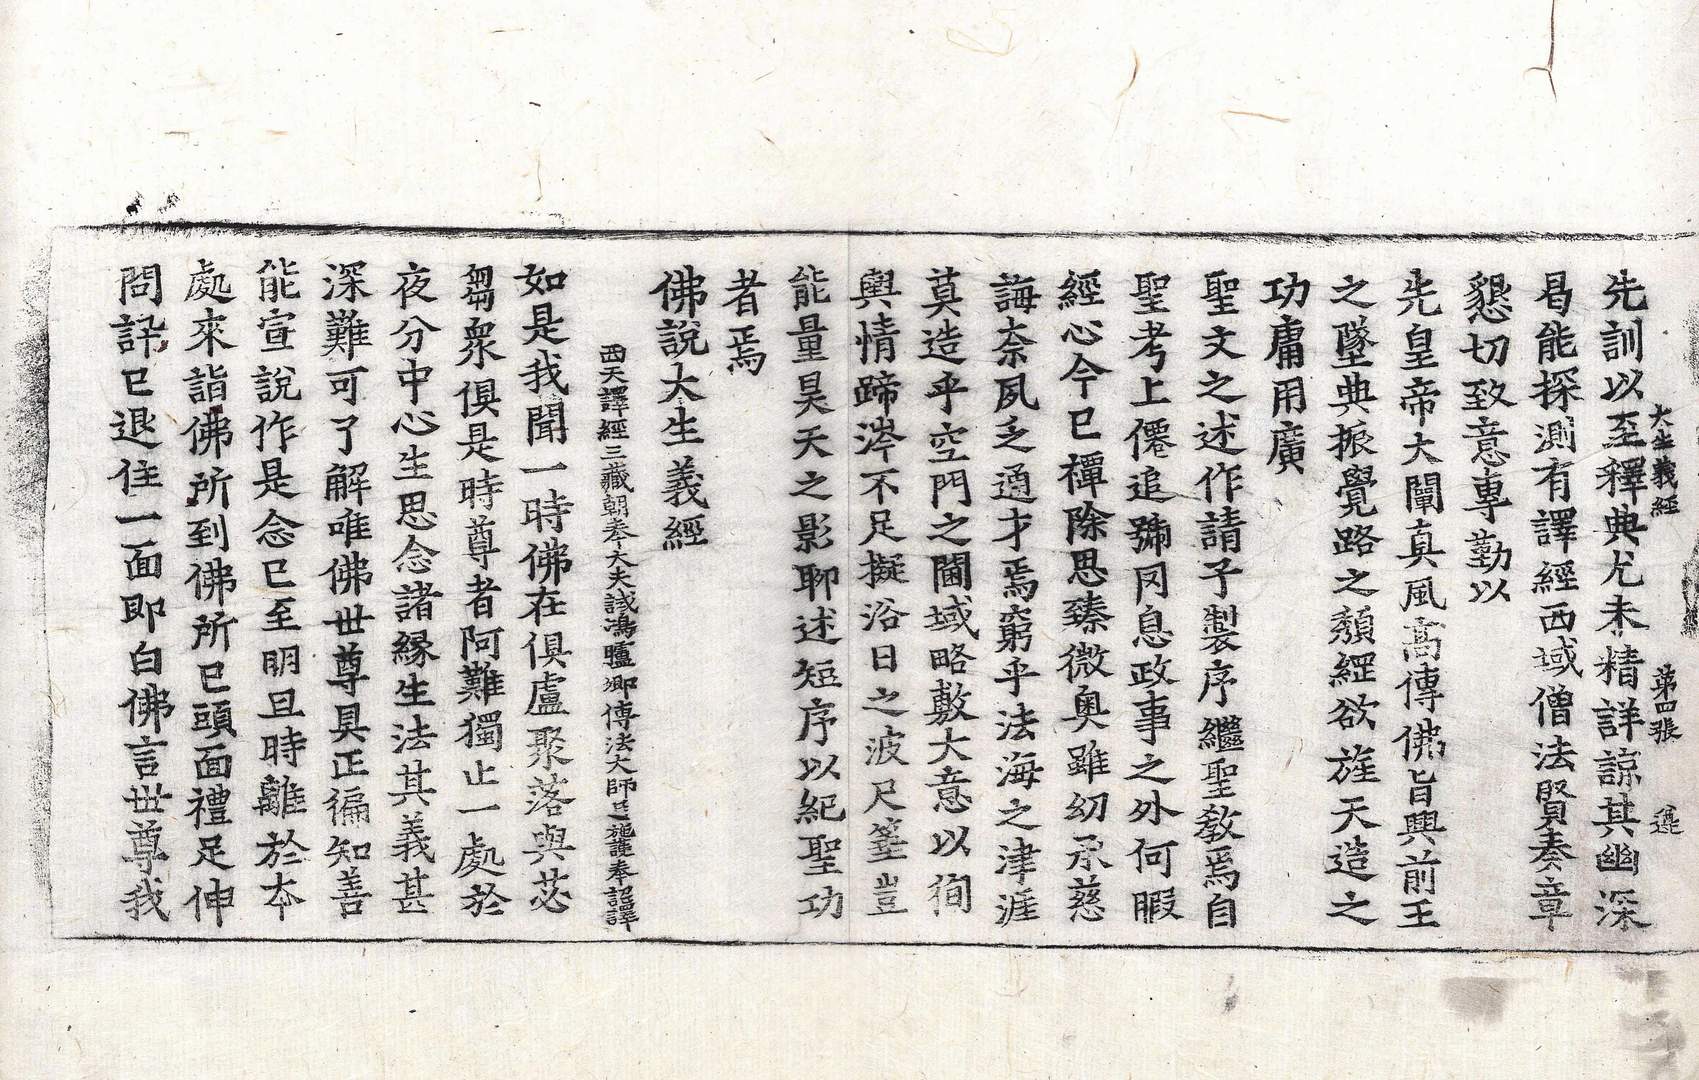 大生義經 第四張 遵
先訓以至釋典尤未精詳諒其幽深
曷能探測有譯經西域僧法賢奏章
懇切致意專勤以
先皇帝大闡真風高傳佛旨興前王
之墜典振覺路之頽綱欲旌天造之
功庸用廣
聖文之述作請予製序繼聖教焉自
聖考上僊追號罔息政事之外何暇
經心今已禫除思臻微奥雖幼承慈
誨柰夙乏通才焉窮乎法海之津涯
莫造乎空門之閫域略敷大意以徇
輿情蹄涔不足擬浴日之波尺筳豈
能量昊天之影聊述短序以紀聖功
者焉
佛說大生義經
西天譯經三藏朝奉大夫試鴻臚卿傳法大師臣施護奉詔譯
如是我聞一時佛在俱盧聚落與苾
芻衆俱是時尊者阿難獨止一處於
夜分中心生思念諸緣生法其義甚
深難可了解唯佛世尊具正徧知善
能宣說作是念已至明旦時離於本
處來詣佛所到佛所已頭面禮足伸
問訊已退住一面即白佛言世尊我